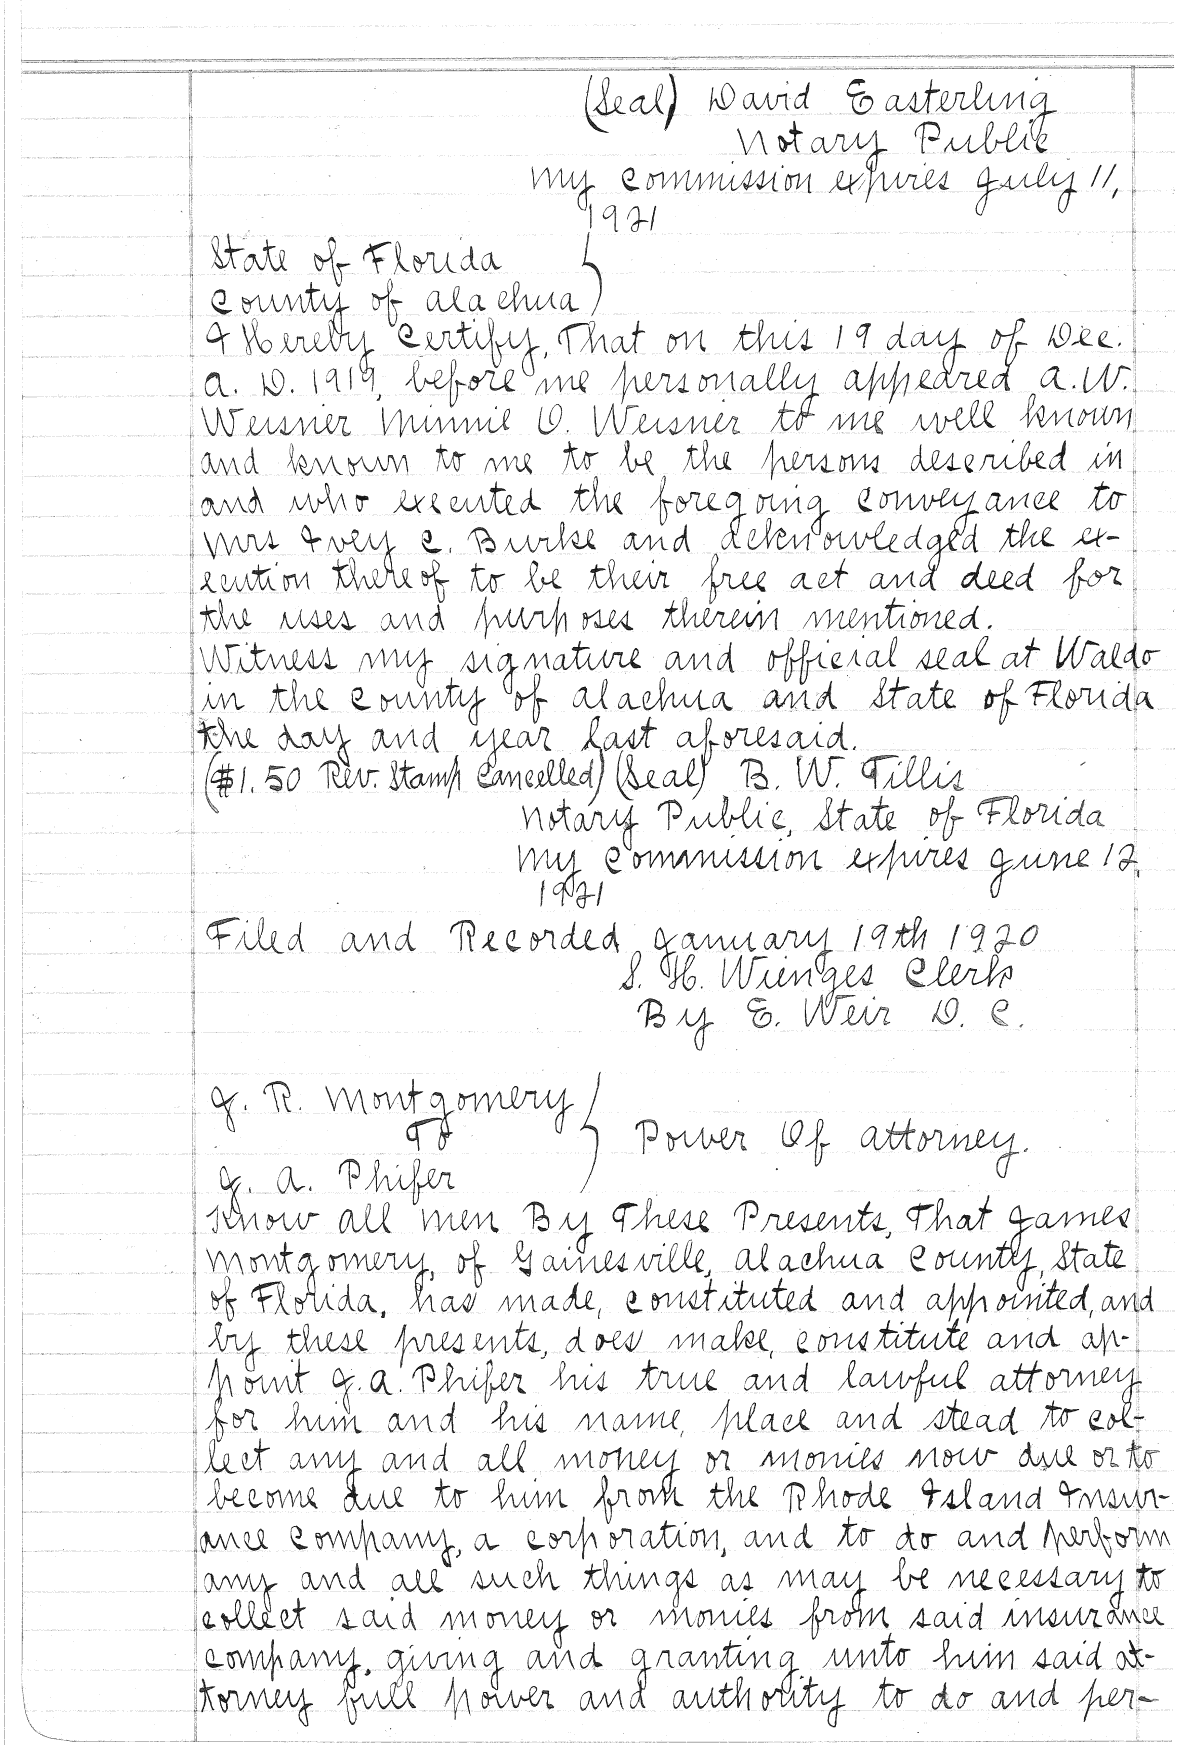 (Seal) David Easterling
Notary Public
My Commission expires July 11,
1921
State of Florida
County of Alachua
I Hereby Certify, That on this 19 day of Dec.
A. D. 1919, before me personally appeared A. W.
Weisner Minnie O. Weisner to me well known
and known to me to be the persons described in
and who executed the foregoing conveyance to
Mrs Ivey C. Burke and acknowledged the ex-
ecution thereof to be their free act and deed for
the uses and purposes therein mentioned.
Witness my signature and official seal at Waldo
in the County of Alachua and State of Florida
the day and year last aforesaid.
($1.50 Rev. Stamp Cancelled) (Seal) B. W. Tillis
Notary Public, State of Florida
My Commission expires June 12,
1921
Filed and Recorded January 19th 1920
S. H. Wienges Clerk
By E. Weir D. C.
J. R. Montgomery
To
Power Of Attorney.
J. A. Phifer
Know All Men By These Presents, That James
Montgomery, of Gainesville, Alachua County, State
of Florida, has made, constituted and appointed, and
by these presents, does make, constitute and ap-
point J. A. Phifer his true and lawful attorney
for him and his name, place and stead to col-
lect any and all money or monies now due or to
become due to him from the Rhode Island Insur-
ance Company, a corporation, and to do and perform
any and all such things as may be necessary to
collect said money or monies from said insurance
company, giving and granting unto him said at-
torney full power and authority to do and per-